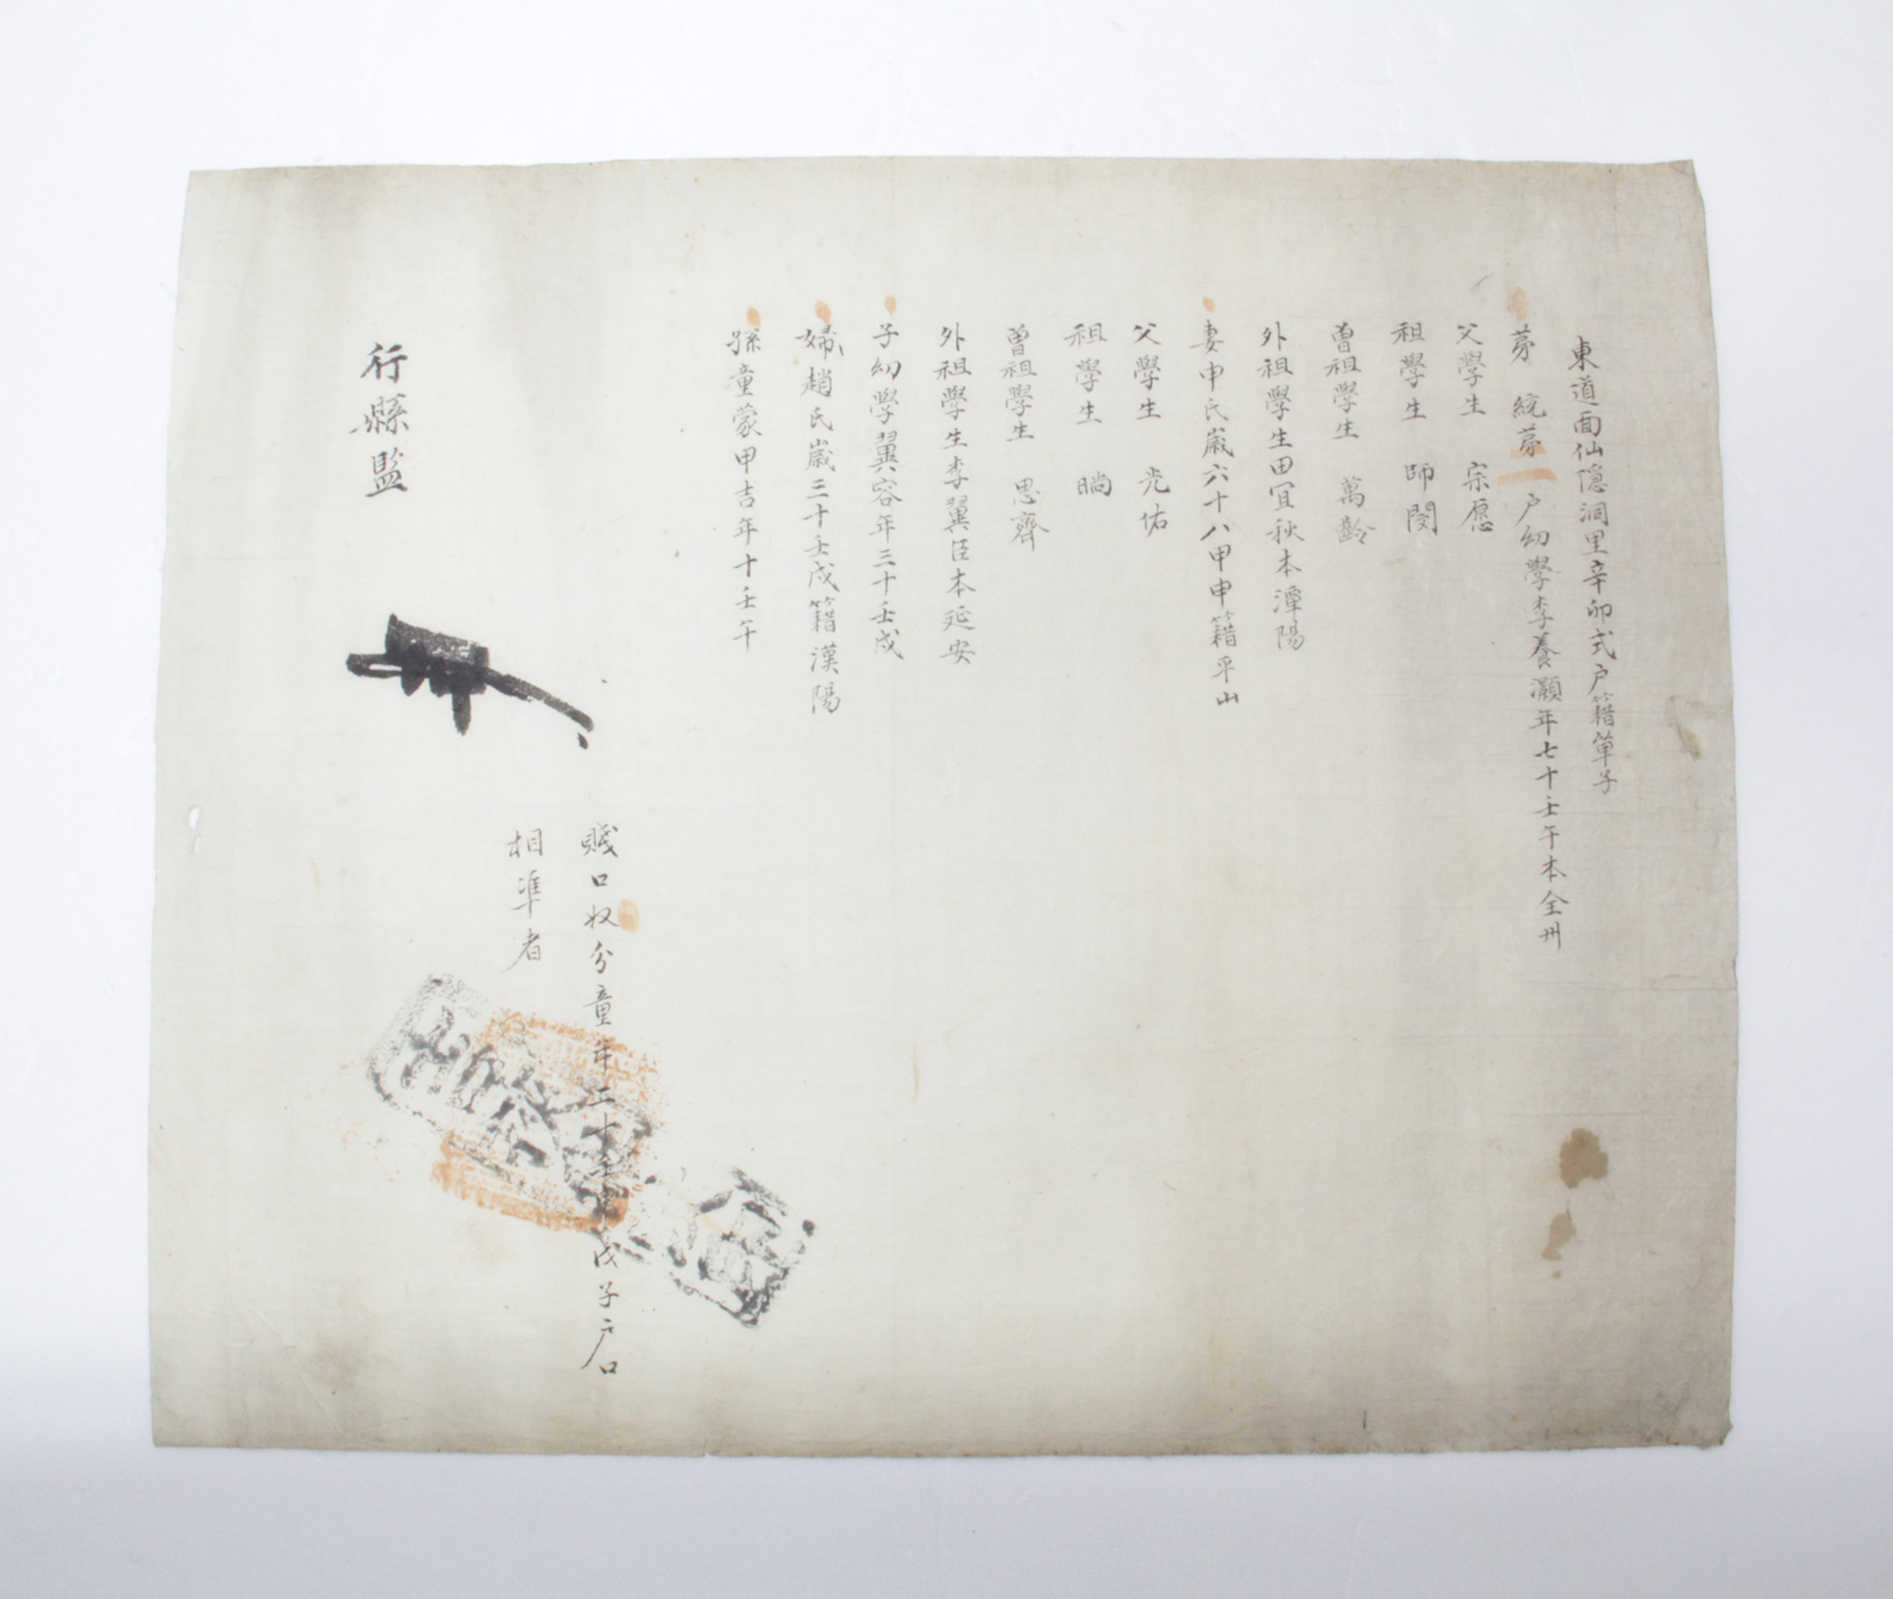 東道面仙隱洞里辛卯式户籍單子
第 統第 户幼學李養灝年七十壬午本全州
父學生 宗愿
祖學生 師閔
曾祖學生 萬齡
外祖學生田冝秋本潭陽
妻申氏歲六十八甲申籍平山
父學生 光佑
祖學生 晌
曾祖學生 思齊
外祖學生李翼臣本延安
子幼學翼容年三十壬戌
婦趙氏歲三十壬戌籍漢陽
孫童蒙甲吉年十壬午
賤口奴分童年二十壬申戊子户口
相準者
行縣監